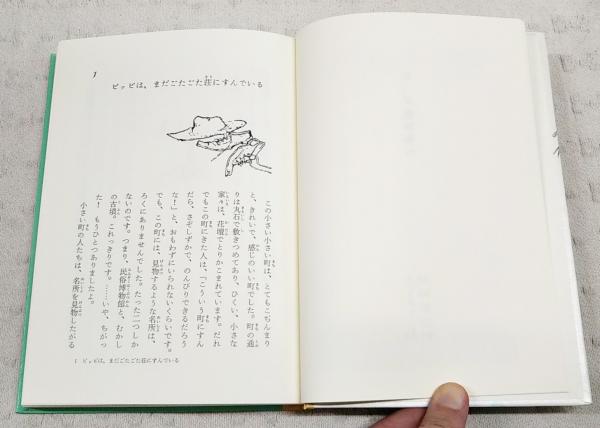 1
ピッピは、まだごたごた荘にすんでいる
この小さい小さい町は、とてもこぢんまり
と、きれいで、感じのいい町でした。町の通
りは丸石で敷きつめてあり、ひくい、小さな
家々は、花壇でとりかこまれています。だれ
でもこの町にきた人は、「こういう町にすん
だら、さぞしずかで、のんびりできるだろう
な！」と、おもわずにいられないくらいです。
でも、この町には、見物するような名所は、
ろくにありませんでした。たった二つしか
ないのです。つまり、民俗博物館と、むかし
の古墳。これっきりです。……いや、ちがっ
た！　もうひとつありましたよ。
小さい町の人たちは、名所を見物したがる
1 ピッピは、まだごたごた荘にすんでいる